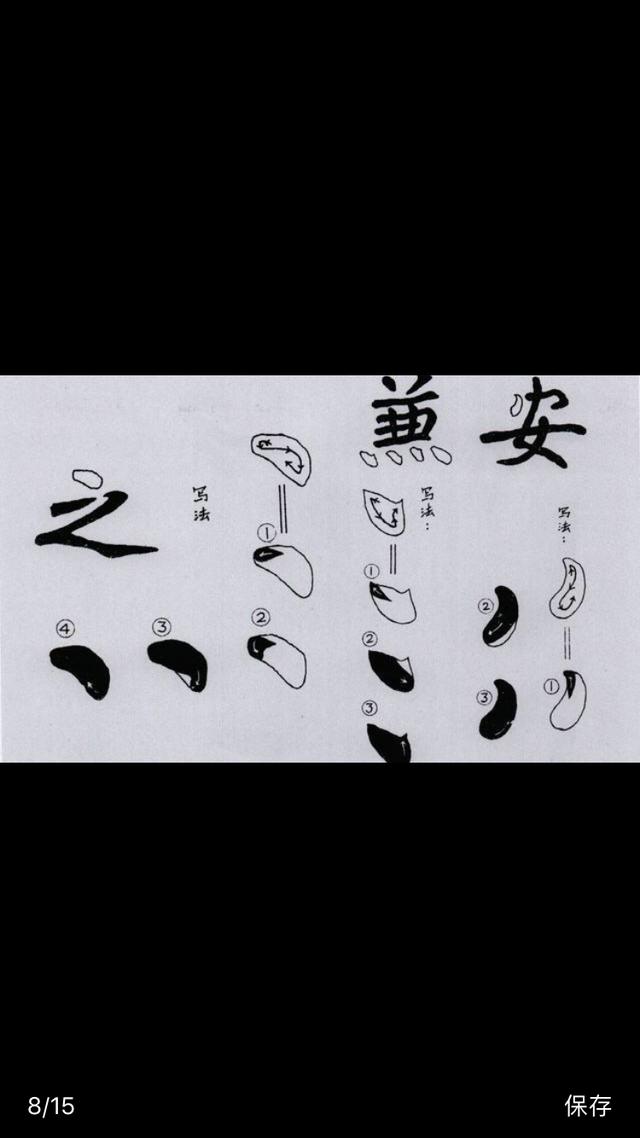 安
写法：
①
②
③
兼
写法：
①
②
③
之
写法
①
②
③
④
8/15
保存